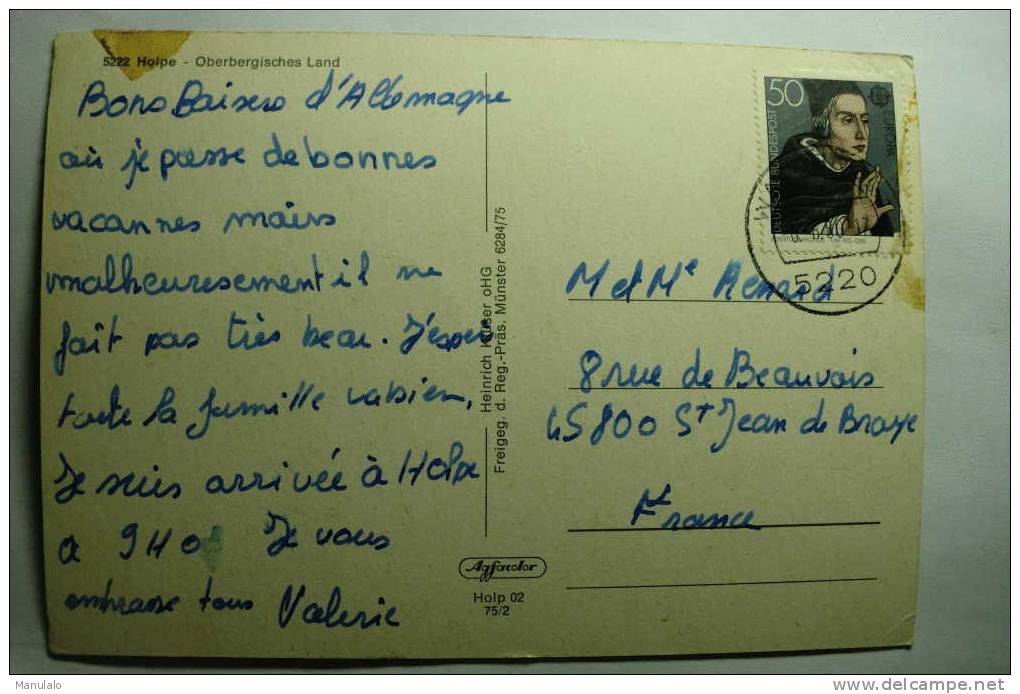 5222 Holpe - Oberbergisches Land
Bons Baisers d'Allemagne
où je passe de bonnes
vacannes mains
malheuresement il ne
fait pas très beau. J'espère
toute la famille va bien,
Je suis arrivée à Holpe
a 9H0 Je vous
embrasse tous Valerie
Heinrich Kauser oHG
Freigeg. d. Reg.-Präs. Münster 6284/75
Agfacolor
Holp 02
75/2
50
DEUTSCHE BUNDESPOST
EUROPA
5220
M et Me Renard
8 rue de Beauvais
45800 St Jean de Braye
France
Manulalo
delcampe.net